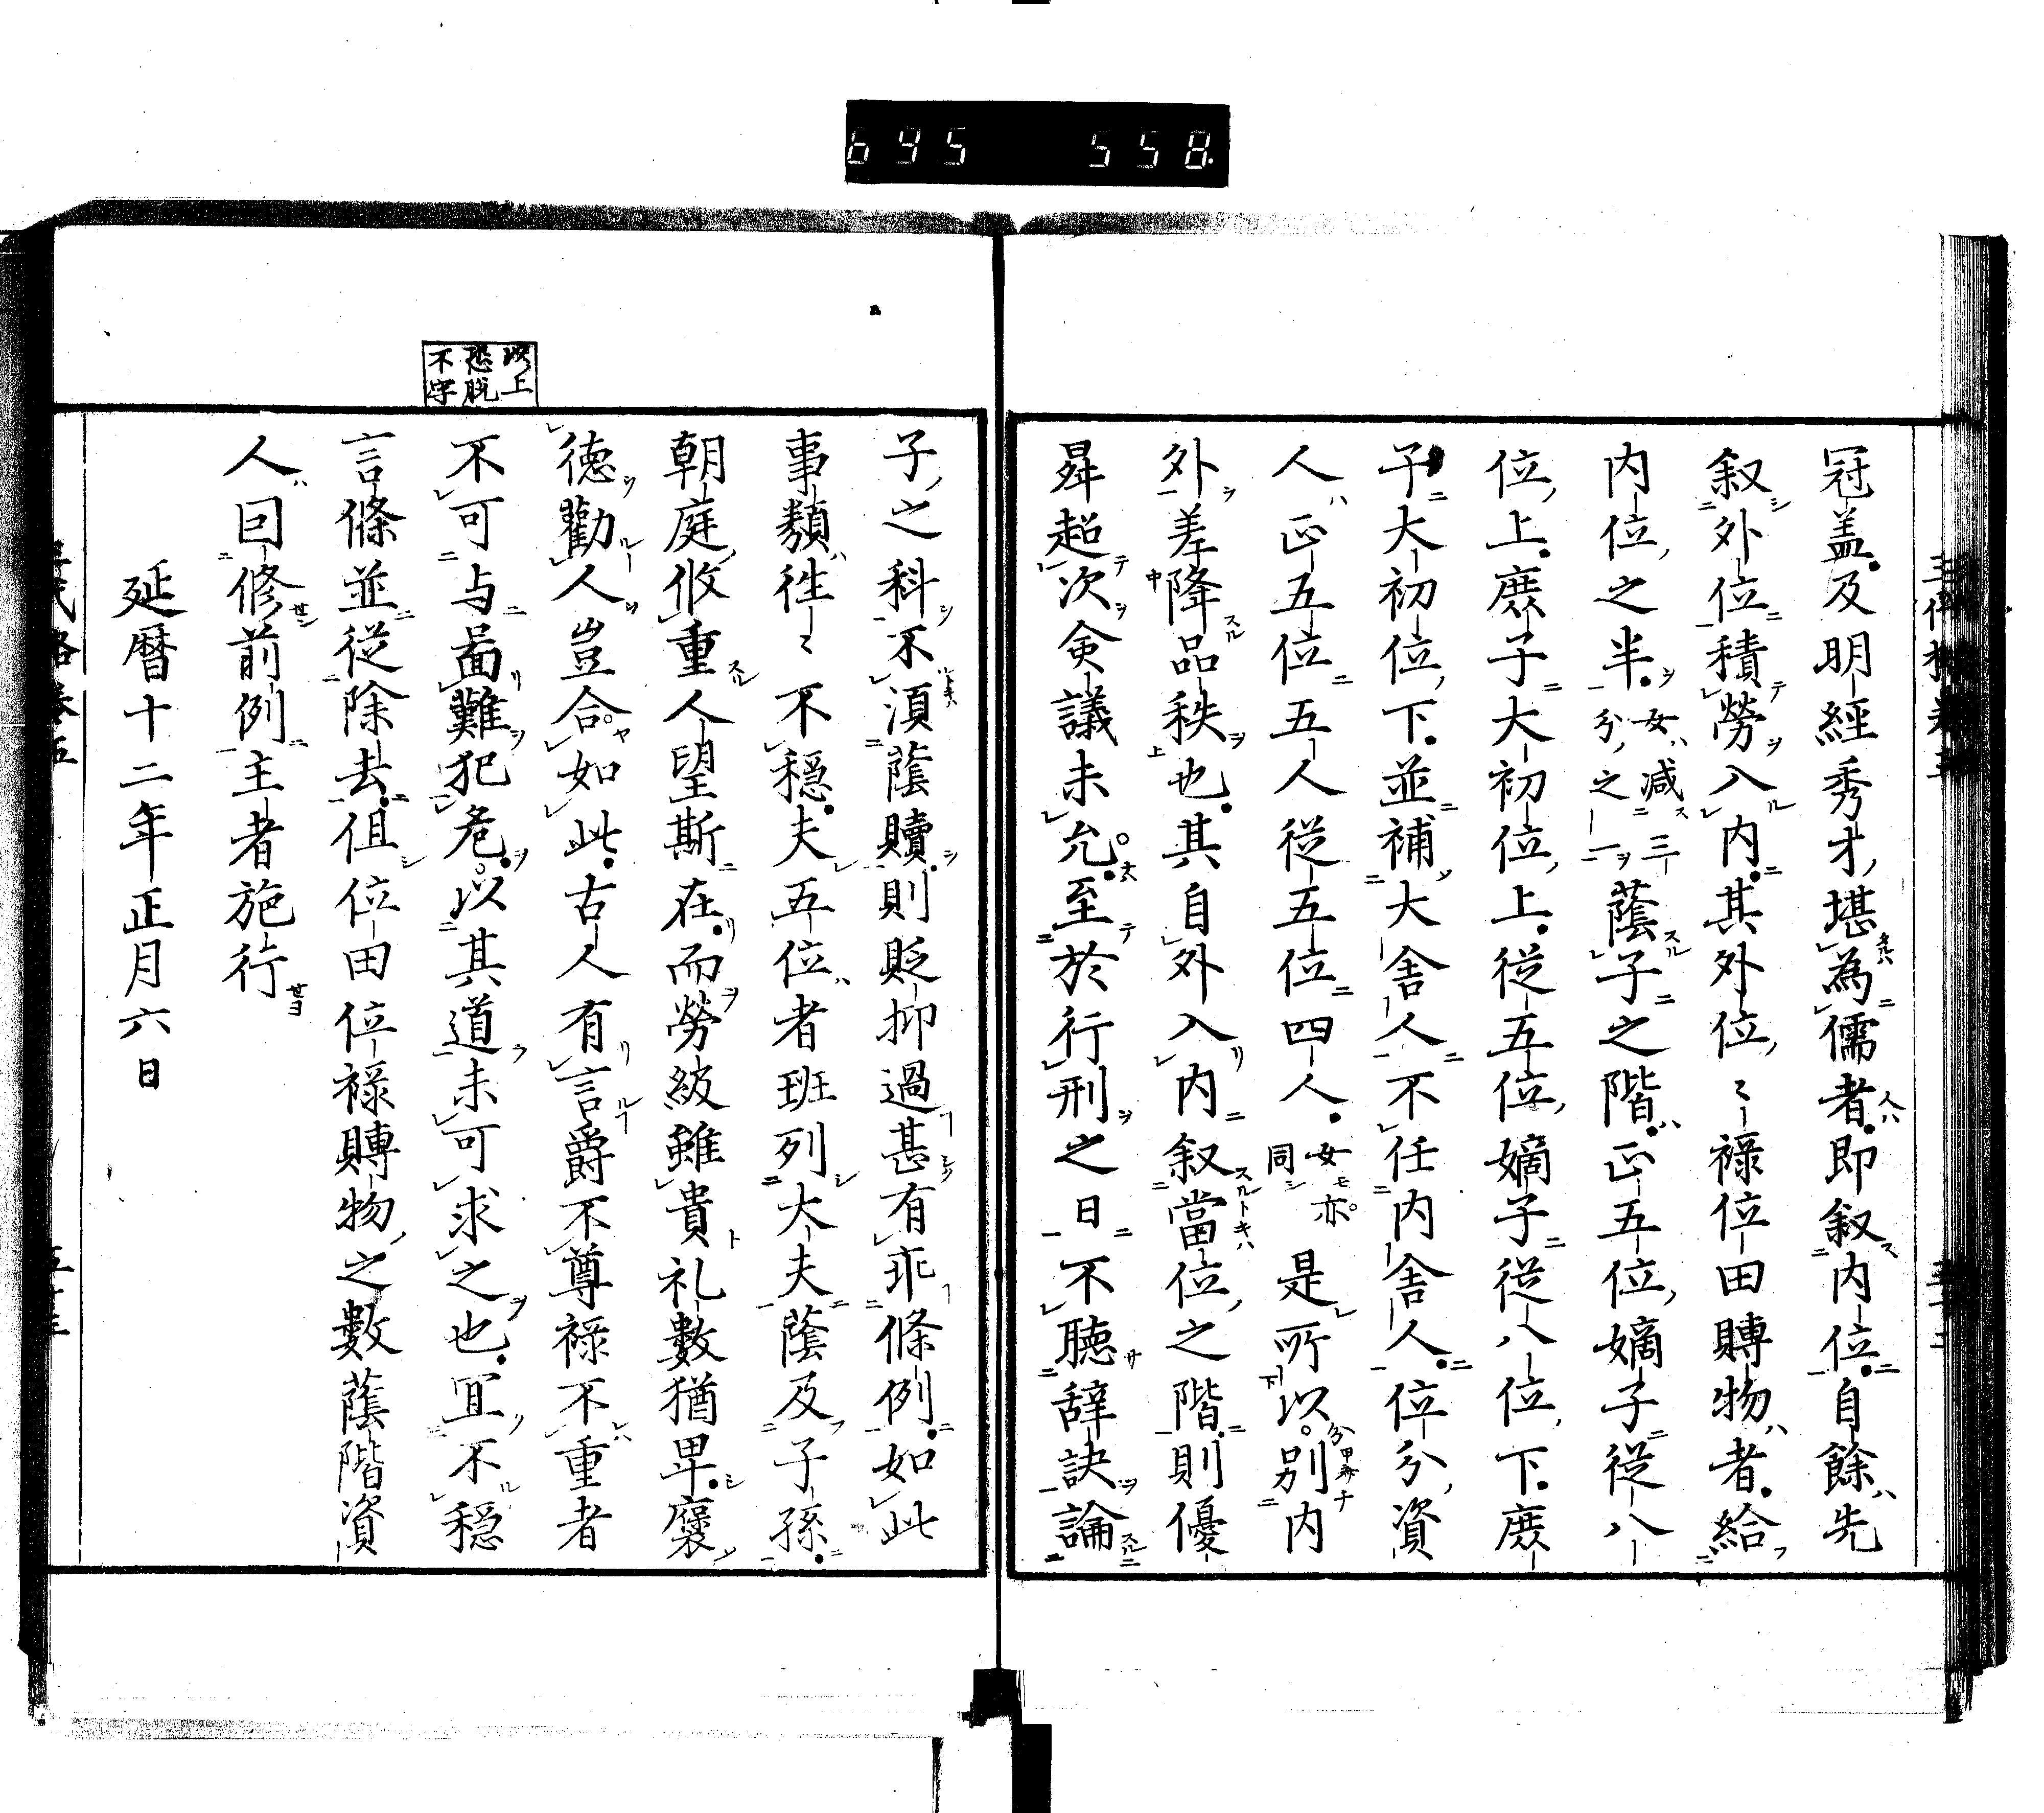 645 558
冠盖及明經秀才堪為儒者即叙内位自餘先
叙外位積勞入内其外位〻祿位田賻物者給
内位之半女減三分之一蔭子之階正五位嫡子從八
位上庶子大初位上從五位嫡子從八位下庶
子大初位下並補大舎人不任内舎人位分資
人正五位五人從五位四人女亦同是所以別内
外差降品秩也其自外入内叙當位之階則優
昇超次僉議未允至於行刑之日不聴辞訣論
子之科不須蔭贖則貶抑過甚有乖條例如此
事類徃〻不穏夫五位者班列大夫蔭及子孫
朝庭攸重人望斯在而勞級雖貴礼數猶卑褒
徳勸人豈合如此古人有言爵不尊祿不重者
不可与啚難犯危以其道未可求之也冝不穏
言條並從除去但位田位祿賻物之數蔭階資
人囙修前例主者施行
延暦十二年正月六日
以上
恐脱
不字